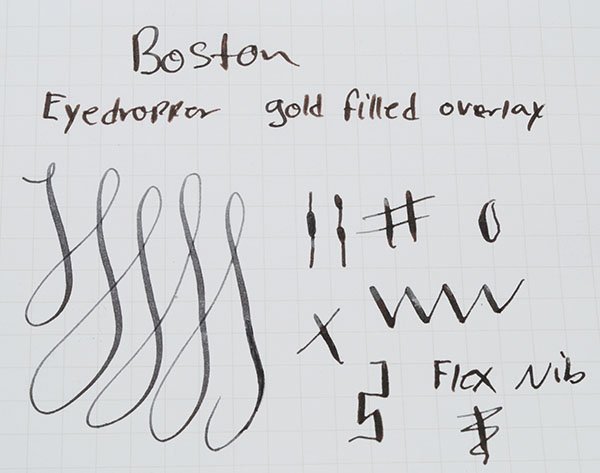 Boston
Eyedropper gold filled overlay
Flex Nib